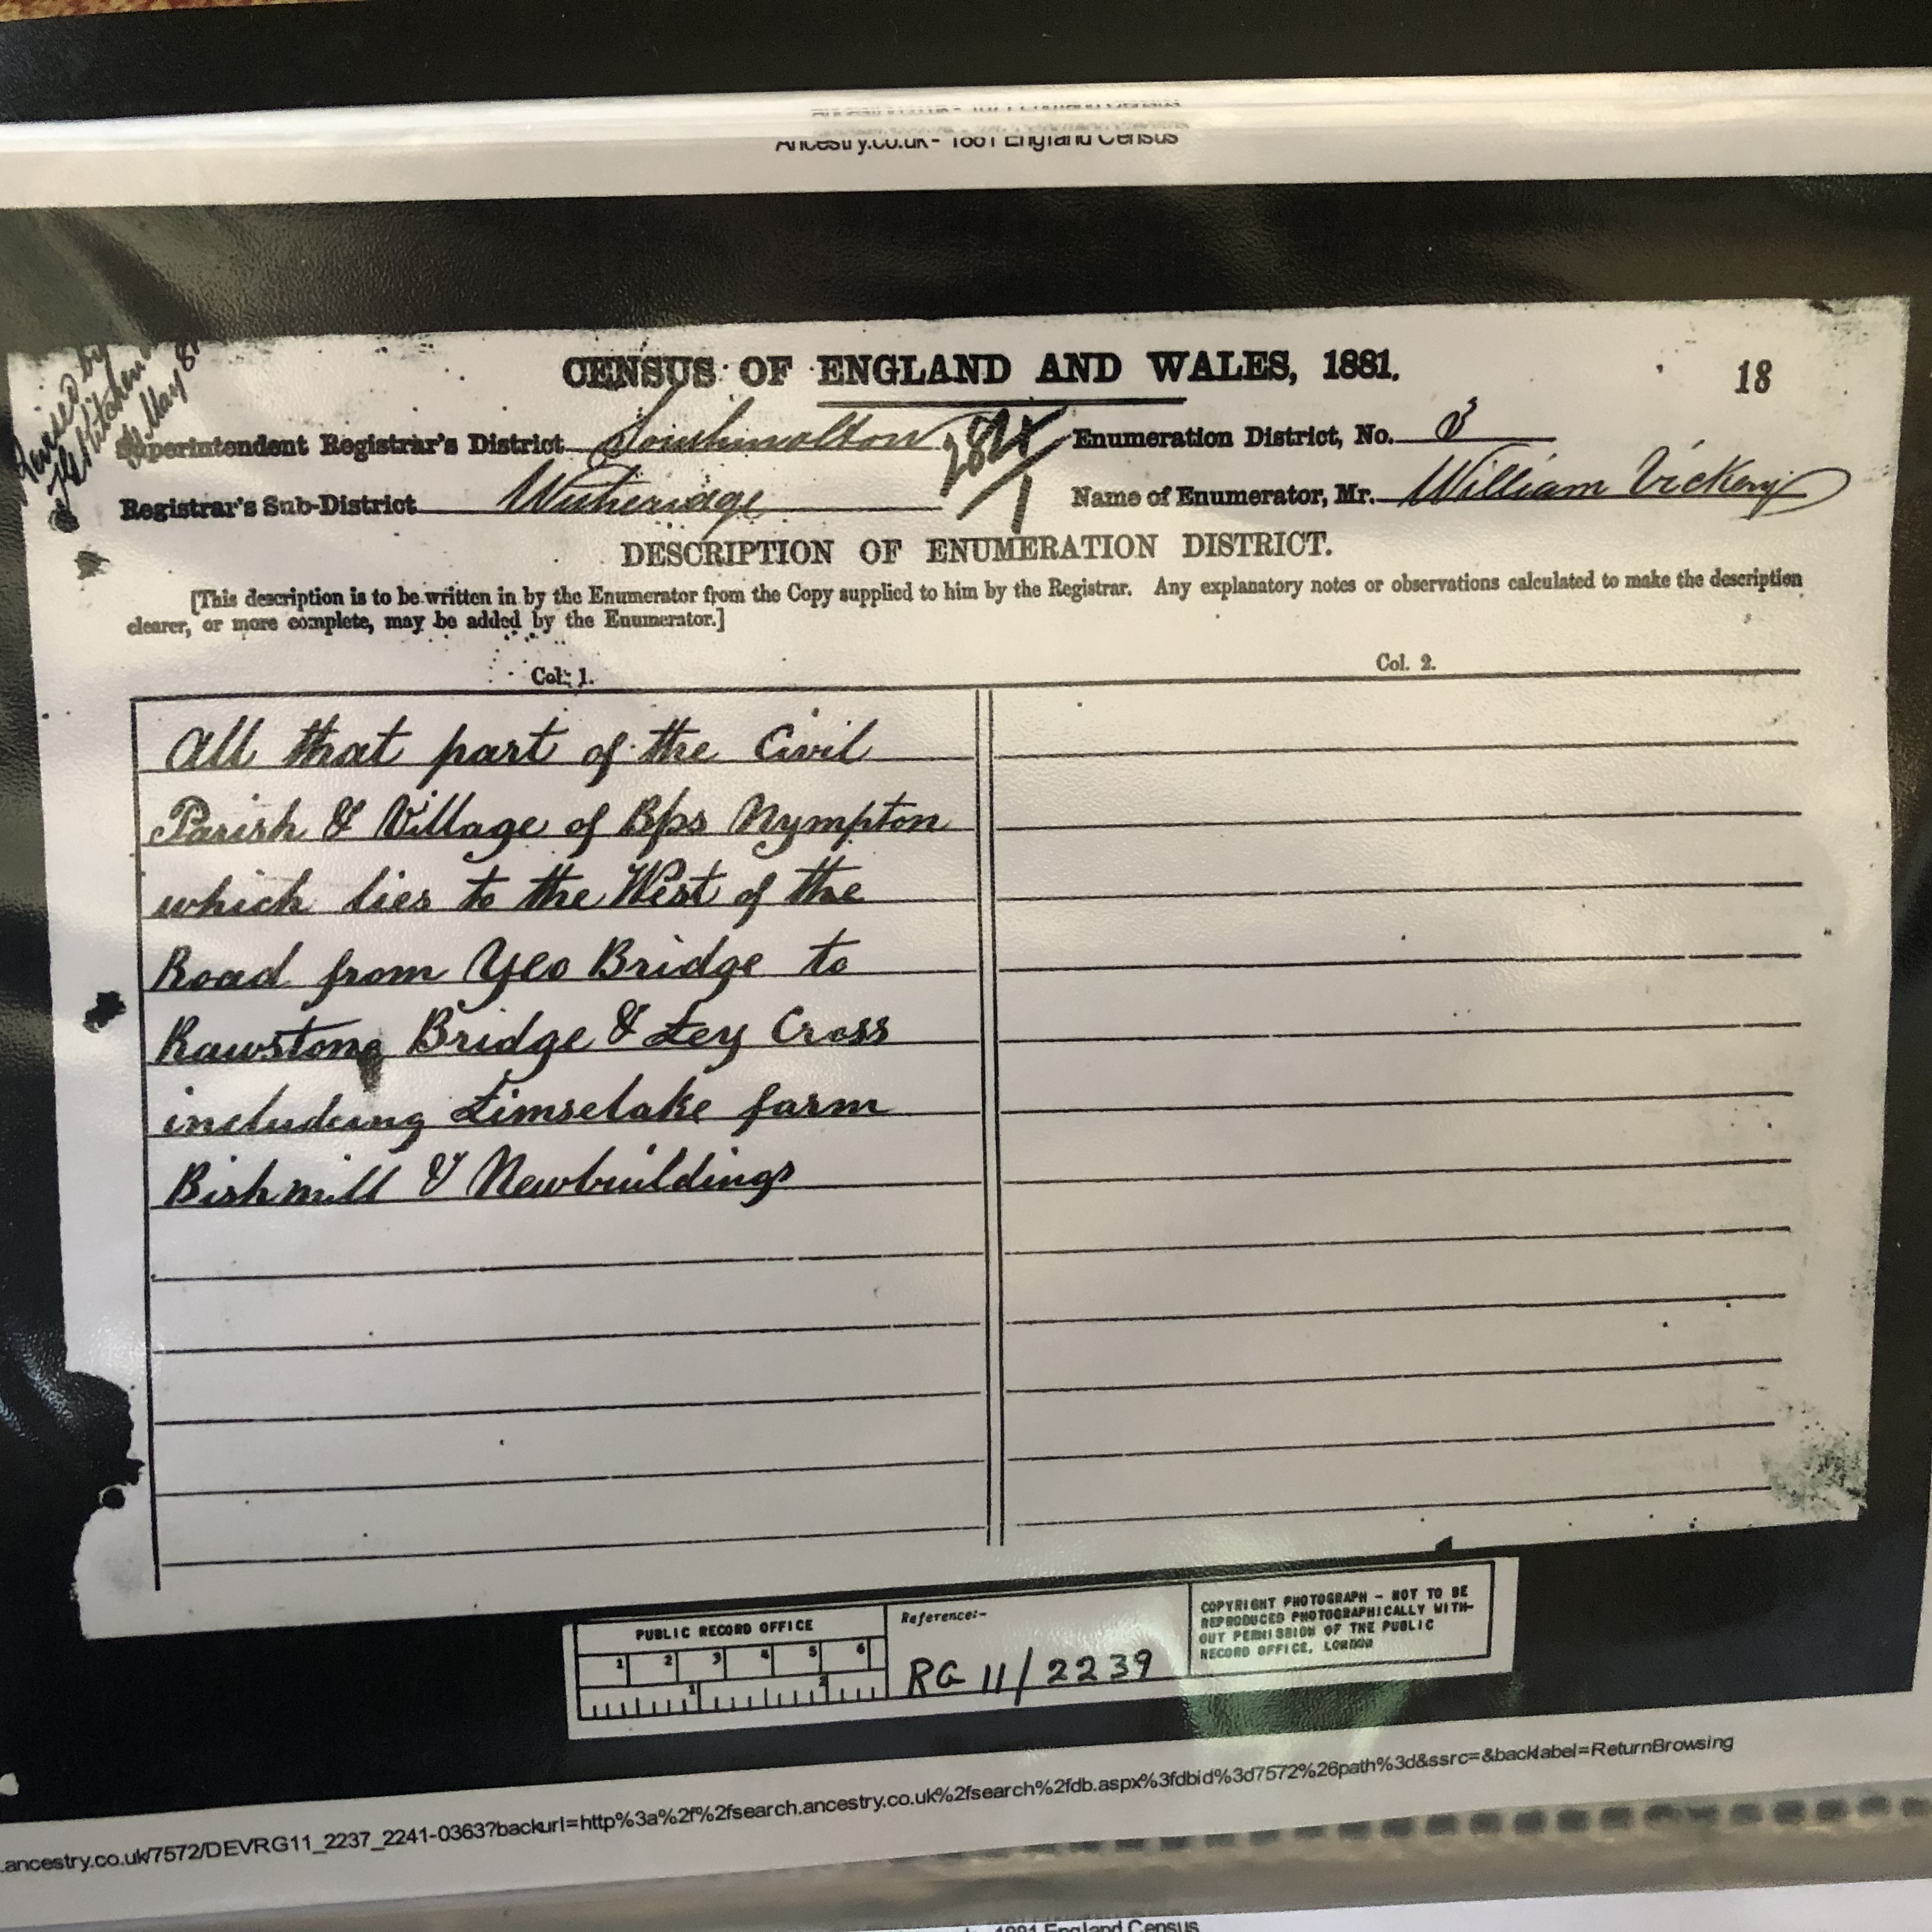 Ancestry.co.uk - 1881 England Census
CENSUS OF ENGLAND AND WALES, 1881.
18
Revised by
May 81
Superintendent Registrar's District Southmolton
282
1
Enumeration District, No. 3
Registrar's Sub-District Witheridge
Name of Enumerator, Mr. William Vickery
DESCRIPTION OF ENUMERATION DISTRICT.
[This description is to be written in by the Enumerator from the Copy supplied to him by the Registrar. Any explanatory notes or observations calculated to make the description
clearer, or more complete, may be added by the Enumerator.]
Col. 1.
Col. 2.
All that part of the Civil
Parish & Village of Bps Nympton
which lies to the West of the
Road from Yeo Bridge to
Rawstone Bridge & Ley Cross
including Limselake farm
Bishmill & Newbuildings
PUBLIC RECORD OFFICE
1 2 3 4 5 6
1 2
Reference:-
RG 11/2239
COPYRIGHT PHOTOGRAPH - NOT TO BE
REPRODUCED PHOTOGRAPHICALLY WITH-
OUT PERMISSION OF THE PUBLIC
RECORD OFFICE, LONDON
.ancestry.co.uk/7572/DEVRG11_2237_2241-0363?backurl=http%3a%2f%2fsearch.ancestry.co.uk%2fsearch%2fdb.aspx%3fdbid%3d7572%26path%3d&ssrc=&backlabel=ReturnBrowsing
1881 England Census